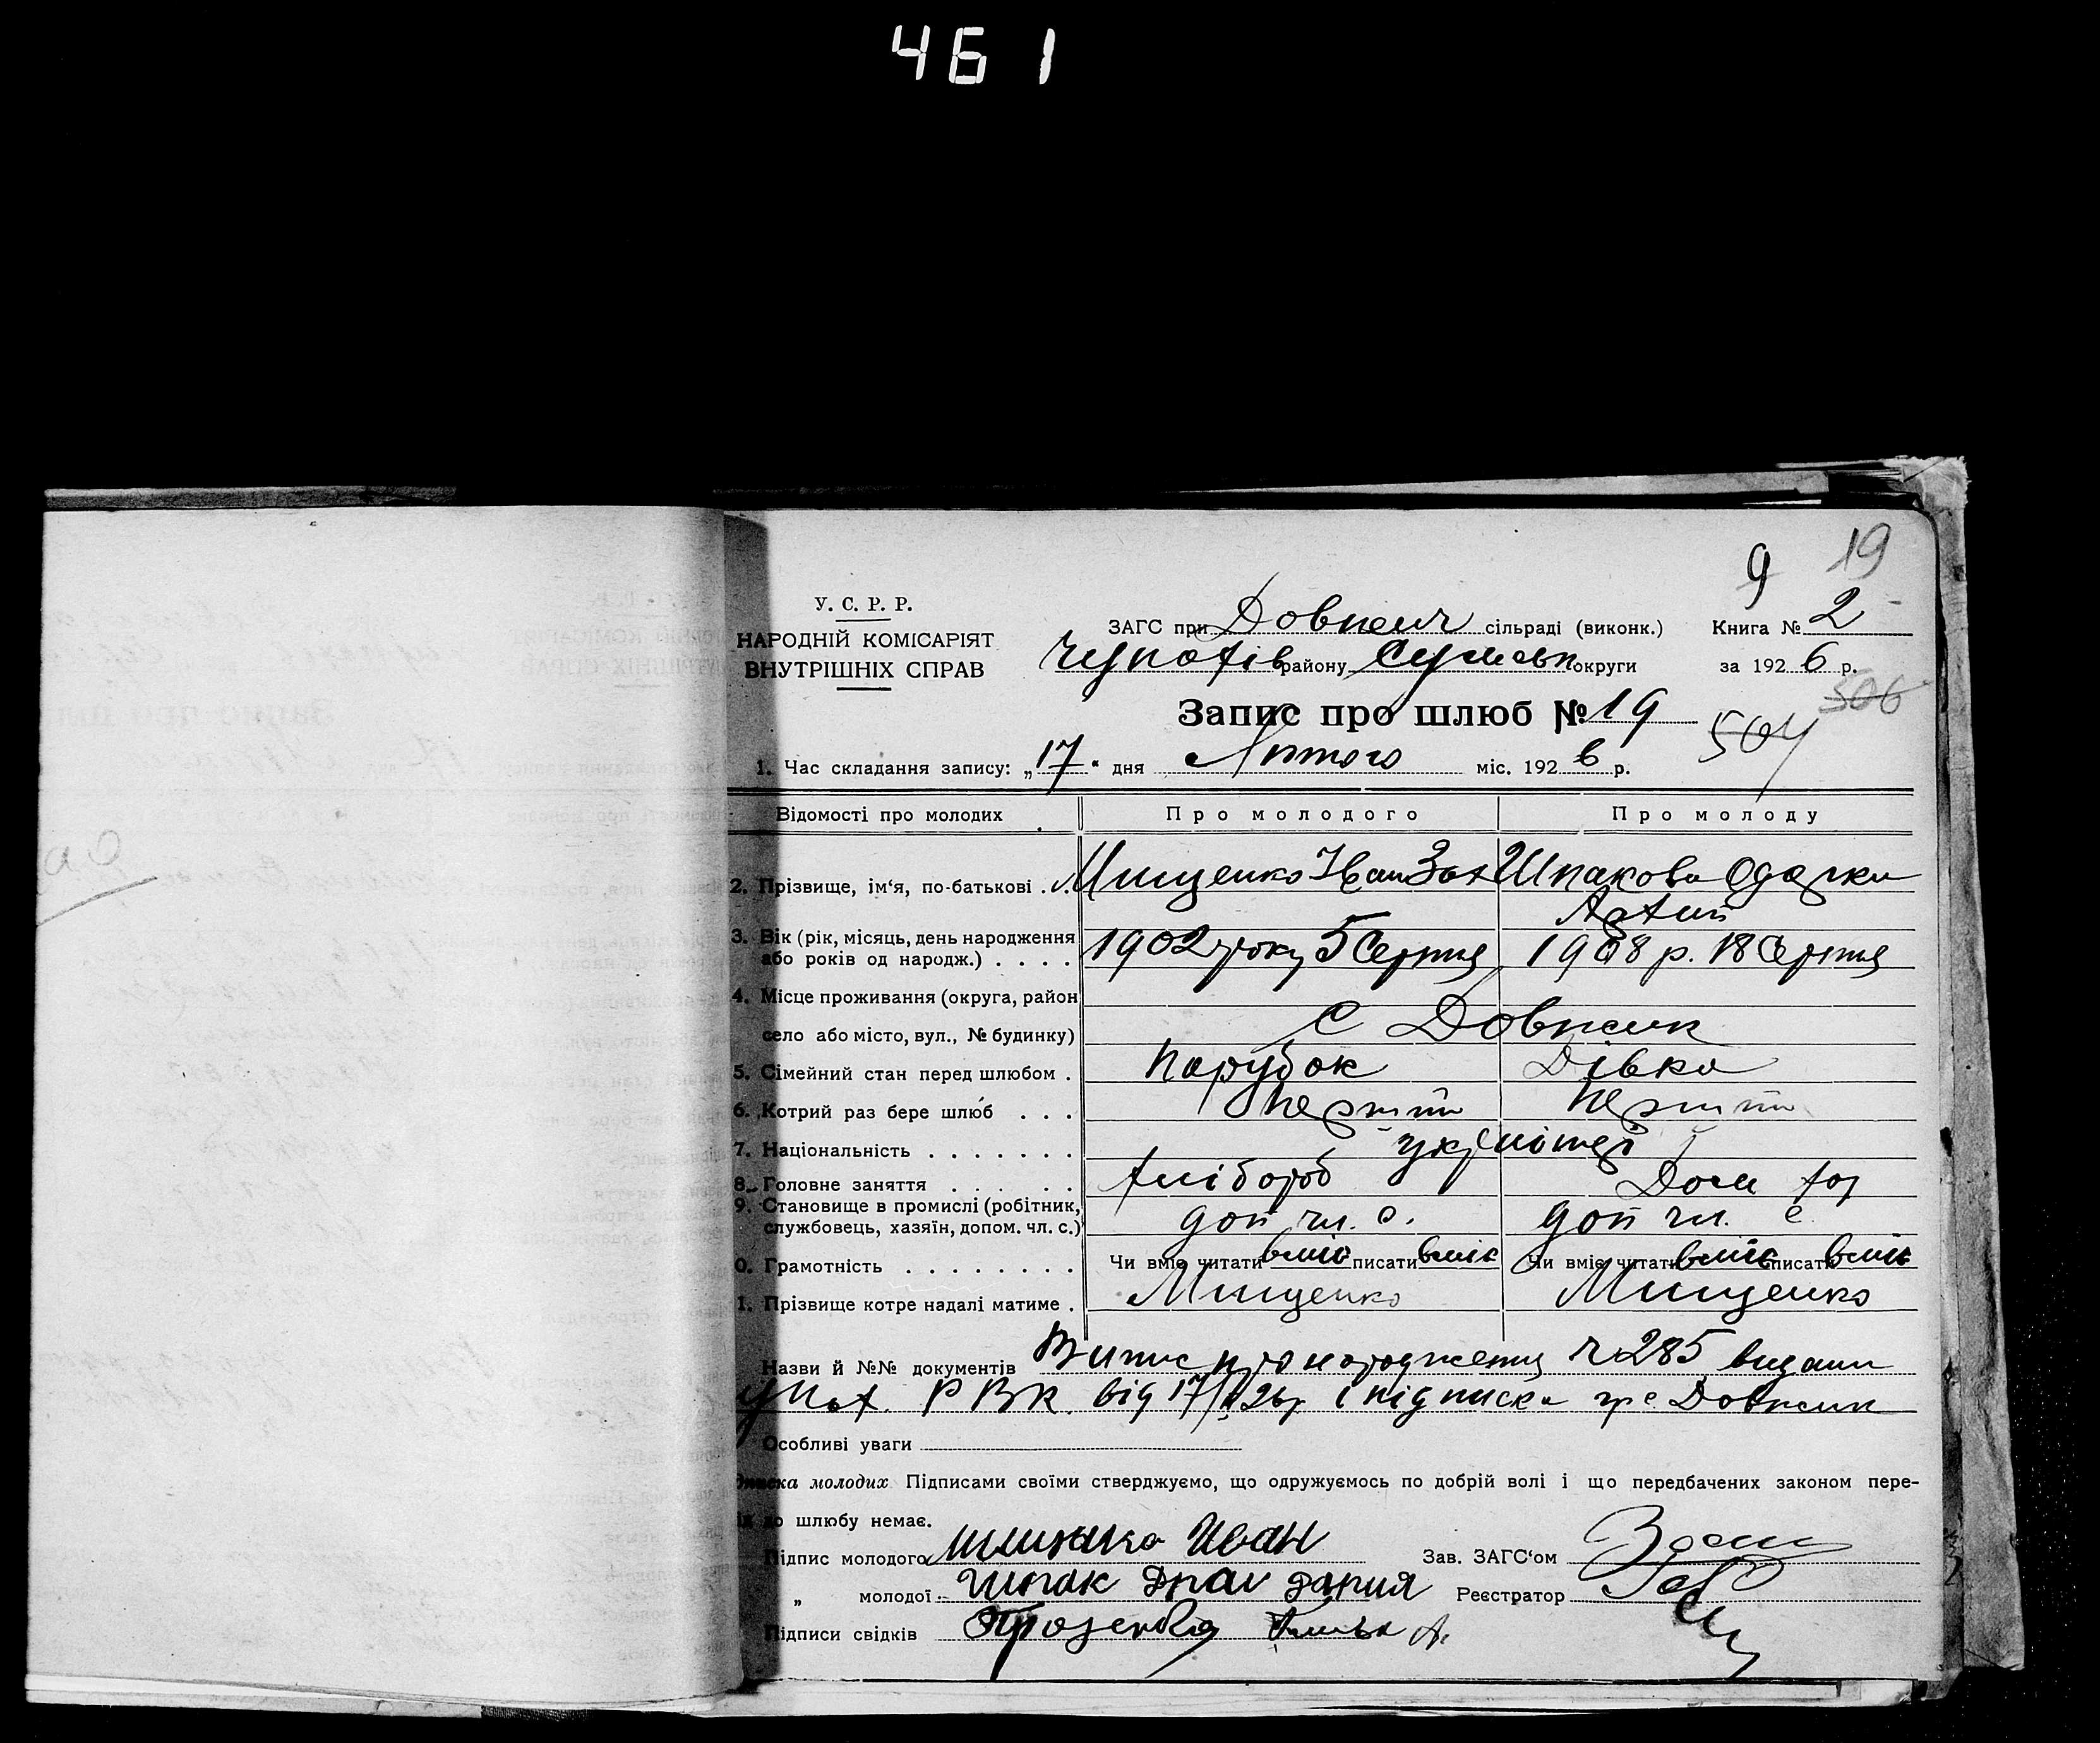 461
9 19
У. С. Р. Р.
НАРОДНІЙ КОМІСАРІЯТ
ВНУТРІШНІХ СПРАВ
ЗАГС при Довжич сільраді (виконк.) Книга № 2
Чупахів району Сумськ округи за 1926 р.
Запис про шлюб № 19
506
504
1. Час складання запису: „17“ дня Лютого міс. 1926 р.
Відомості про молодих Про молодого Про молоду
2. Прізвище, ім‘я, по-батькові . Мищенко Іван Зах Шпакова Одарка
3. Вік (рік, місяць, день народження
або років од народж.) . . . . 1902 року 5 Серпня 1908 р. 18 Серпня
4. Місце проживання (округа, район
село або місто, вул., № будинку) С Довжик
5. Сімейний стан перед шлюбом . Парубок Дівка
6. Котрий раз бере шлюб . . . Перший Перший
7. Національність . . . . . . .
8. Головне заняття . . . . . Хлібороб Дом хоз
9. Становище в промислі (робітник,
службовець, хазяїн, допом. чл. с.) доп чл. с. доп чл. с.
0. Грамотність . . . . . . . . Чи вміє читати вміє писати вміє Чи вміє читати вміє писати вміє
1. Прізвище котре надалі матиме . Мищенко Мищенко
Назви й №№ документів Випис про народження ч 285 видани
РВК від 17/ 26р і підписка гр с Довжик
Особливі уваги
молодих Підписами своїми стверджуємо, що одружуємось по добрій волі і що передбачених законом пере-
до шлюбу немає.
Підпис молодого Иван Зав. ЗАГС‘ом
„ молодої Шпак дария Реєстратор
Підписи свідків